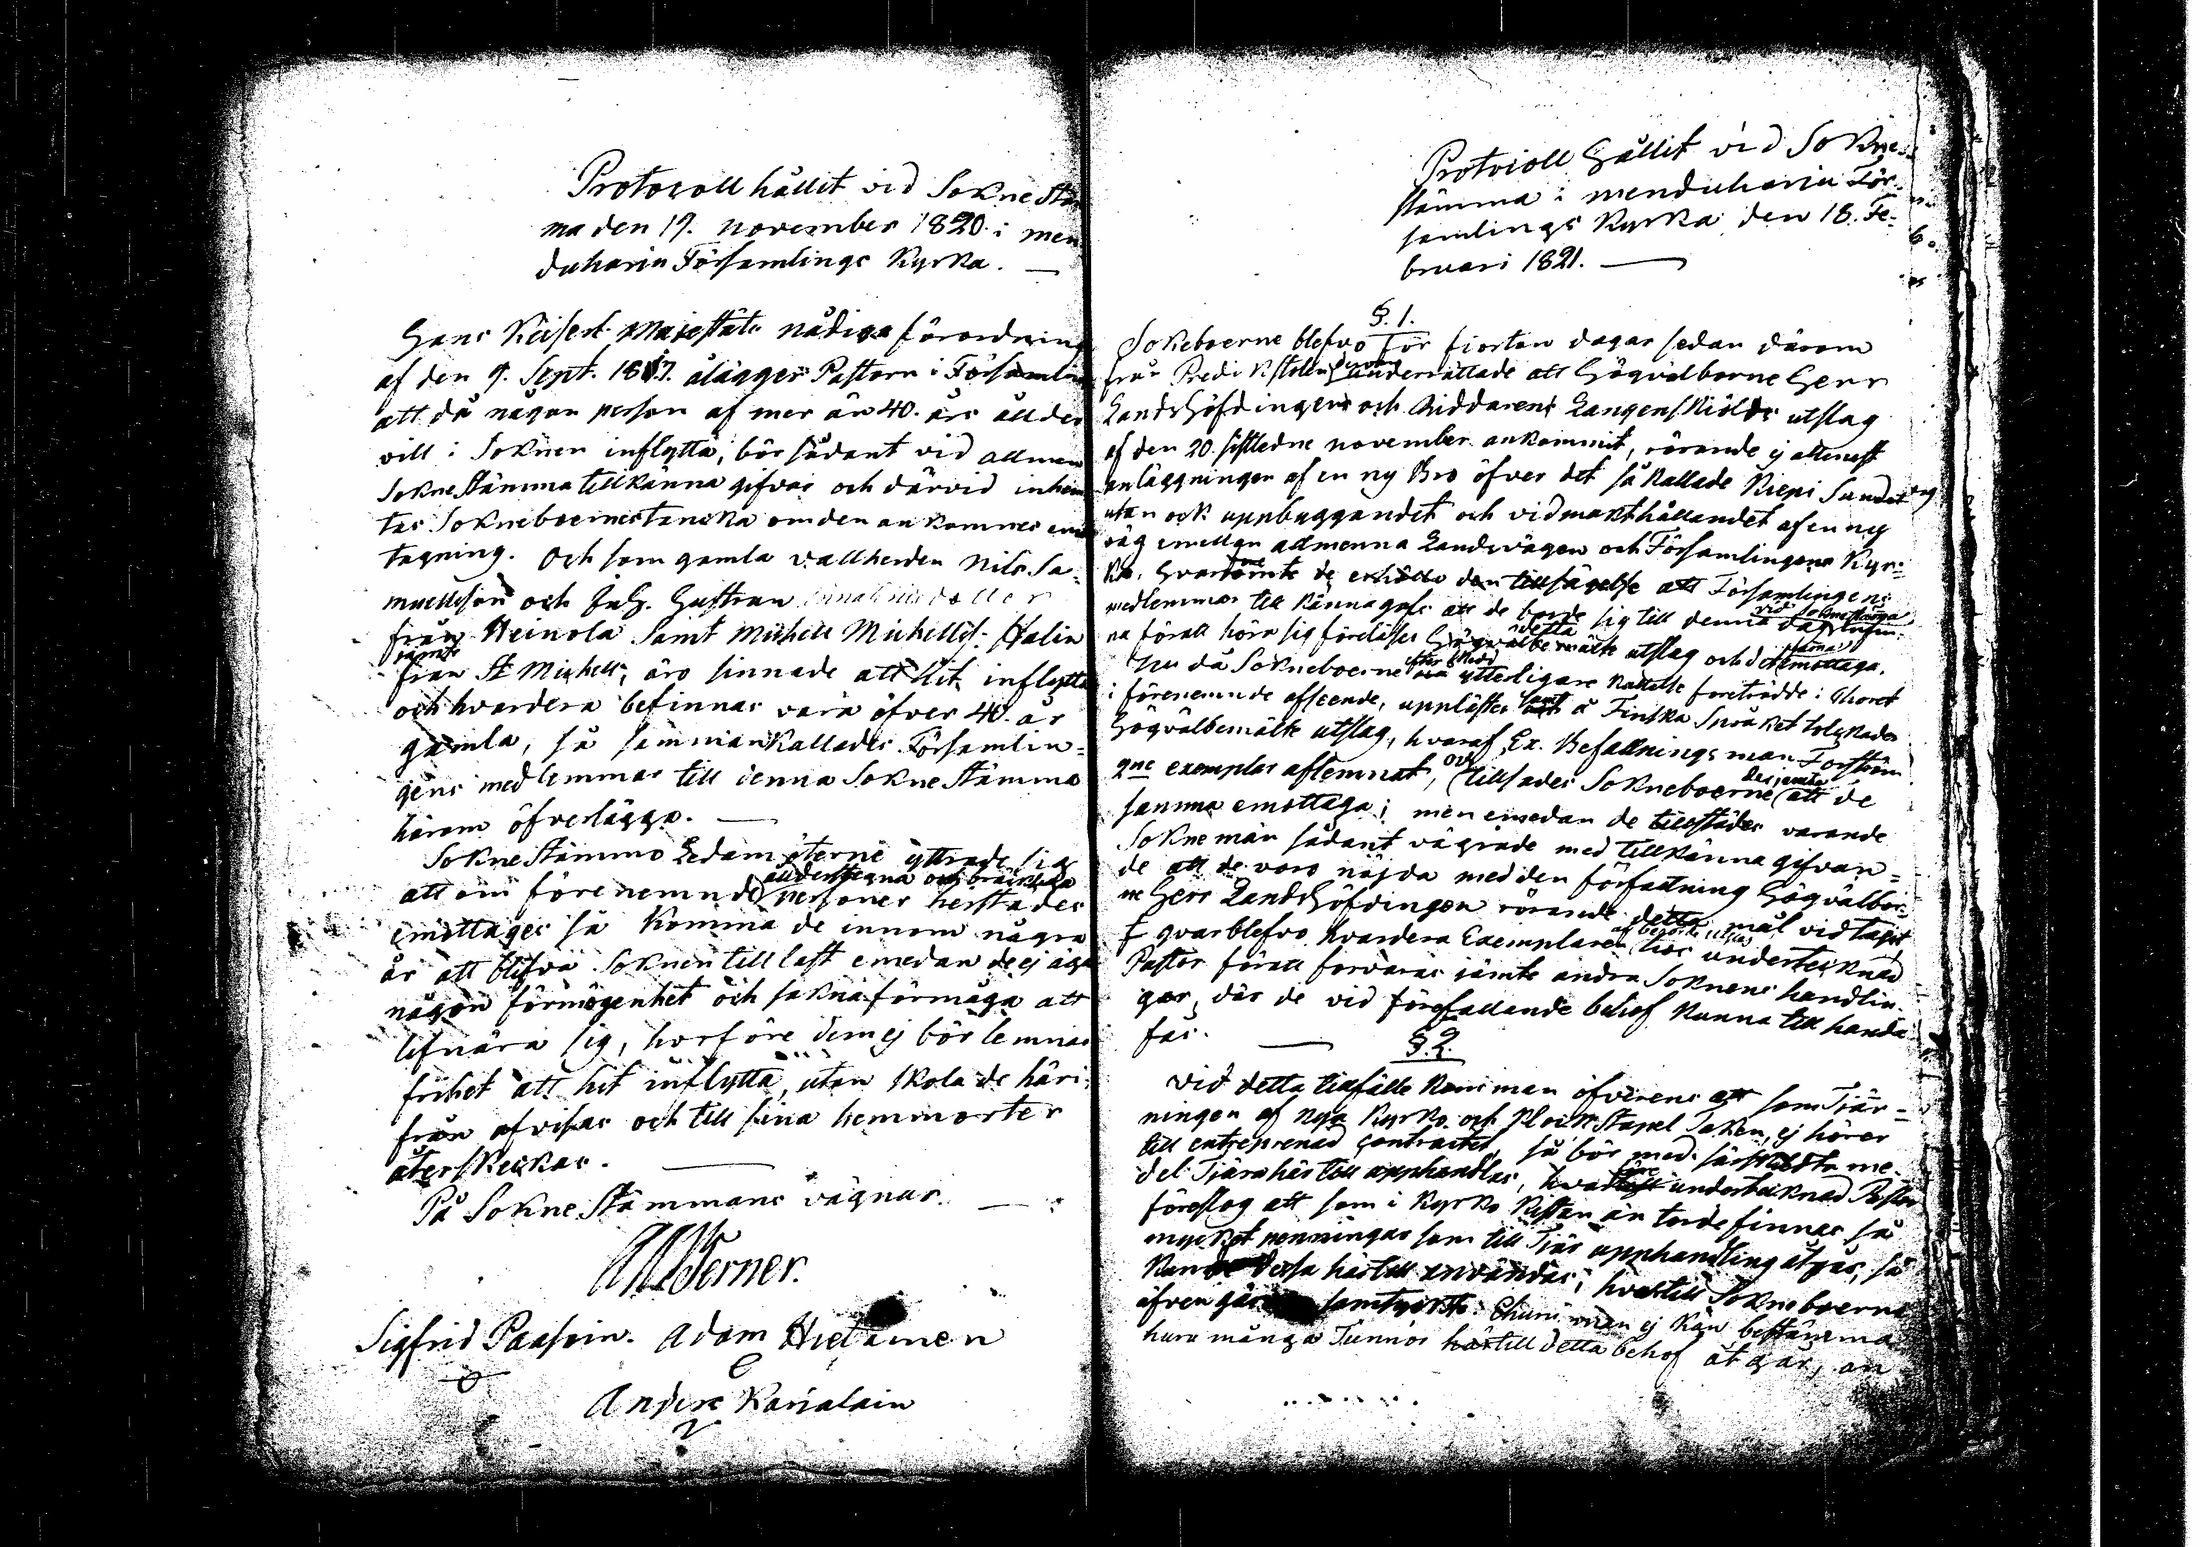 Protocoll hållit vid Sokne Stä
ma den 19. november 1820. i men
duharju Församlings Kyrka. —
Hans Keiserl. Majestäts nådiga förordning
af den 9. Sept. 1817. ålägger Pastorn i Församlin
att då någon person af mer än 40. års ålder
vill i Soknen inflytta, bör sådant vid allmen
Sokne Stämma tillkänna gifvas och därvid inhem
tas Sokneboernes tancka om den ankomnes emo
tagning. Och som gamla vallherden Nils Sa=
muelsson och Hustrun
från Heinola samt Michell Michellss. Halin
från St Michell; äro sinnade att hit inflytta
och hvardera befinnas vara öfver 40. år
gamla, så sammankallades Församlin=
gens medlemmar till denna Sokne Stämma
härom öfverlägga. —
Sokne Stämmo Ledamöterne yttrade sig
att om förenemnde ålderstegna och bräckliga personer herstädes
emottages så komma de innom några
år att blifva Soknen till last emedan de ej äga
någon förmögenhet och sakna förmåga att
lifnära sig, hvarföre dem ej bör lemnas
frihet att hit inflytta, utan skola de häri=
från afvisas och till sina hemmorter
återskickas. —
På Sokne Stämmans vägnar —
Werner.
Sigfrid Paasoin. Adam Hietainen
Anders Karialain
Protocoll Hållit vid Sokne
stämma i menduharju För=
samlings Kyrka den 18. Fe=
bruari 1821. —
§. 1.
Sokneboerne blefvo för fiorton dagar sedan därom
från Predikstolen underrättade att Högvälborne Herr
Landshöfdingens och Riddarens Langenskiölds utslag
af den 20. sistledne november ankommit, rörande ej allenast
anläggningen af en ny Bro öfver det så kallade Kiepi Sundet
utan ock uppbyggandet och vidmakthållandet af en ny
väg emellan allmenna Landsvägen och Församlingens Kyr=
ka, de erhöllo den tillsägelse att Församlingens
medlemmar till känna gafs att de borde sig till denna dag vid Sokne Stämma
na för att höra sig föreläses Högvälbemälte utslag och det samma emottaga.
Nu då Sokneboerne efter skedd ytterligare kallelse foreträdde i Choret
i förenemnde afseende, upplästes samt å Finska Språket tolkades
Högvälbemälte utslag, hvaraf Ex. Befallningsman Forström
exemplar aflemnat, och tillsades Sokneboerne att de
samma emottaga; men emedan de tillstädes varande
Sokne män sådant vägrade med tillkänna gifvan=
de att de voro nöjda med den författning Högvälbor=
ne Herr Landshöfdingen rörande detta mål vidtagit
qvarblefvo hvardera Exemplaren hos undertecknad
Pastor för att förvaras jämte andra Soknens handlin=
gar, där de vid förefallande behof kunna till handa
fås. —
§. 2.
Vid detta tillfälle kom man öfverens att som Tjär=
ningen af nya Kyrko och Klockstapel Taken, ej hörer
till entreprenad contractet, så bör med särskildta me=
del Tjära här till upphandlas, undertecknad Pastor
föreslog att som i Kyrko Kistan än torde finnas så
mycket penningar som till Tjär upphandling åtgår, så
kan dessa här till användas; hvartill Sokneboerne
äfven samtyckte. Ehuru man ej kan bestämma
huru många Tunnor till detta behof åtgår, an